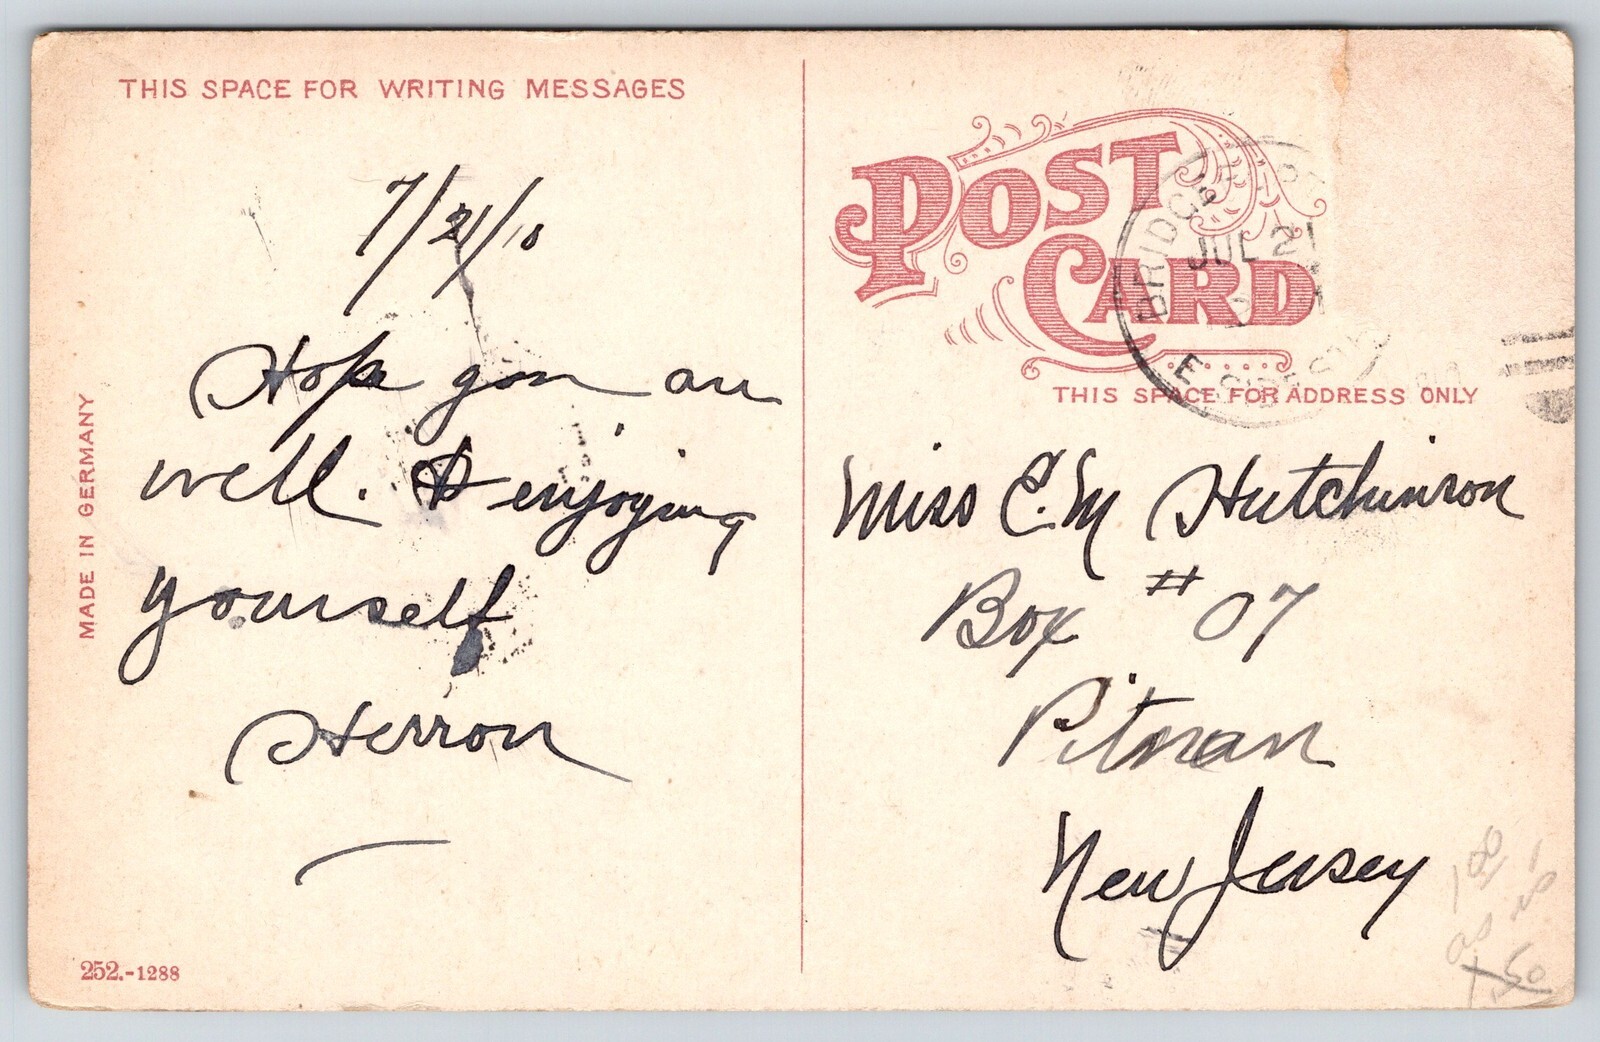 THIS SPACE FOR WRITING MESSAGES
7/21/10
Hope you are
well. & enjoying
yourself
Herron
MADE IN GERMANY
252.-1288
POST
CARD
BRIDGE
JUL 21
THIS SPACE FOR ADDRESS ONLY
Miss E.M Hutchinson
Box # 07
Pitman
New Jersey
100
as is
1.50